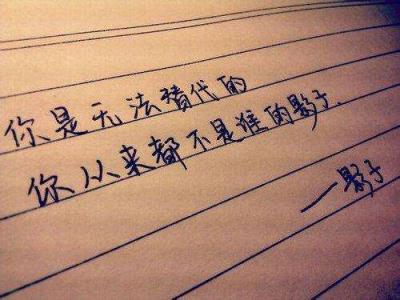 你是无法替代的
你从来都不是谁的影子.
——影子